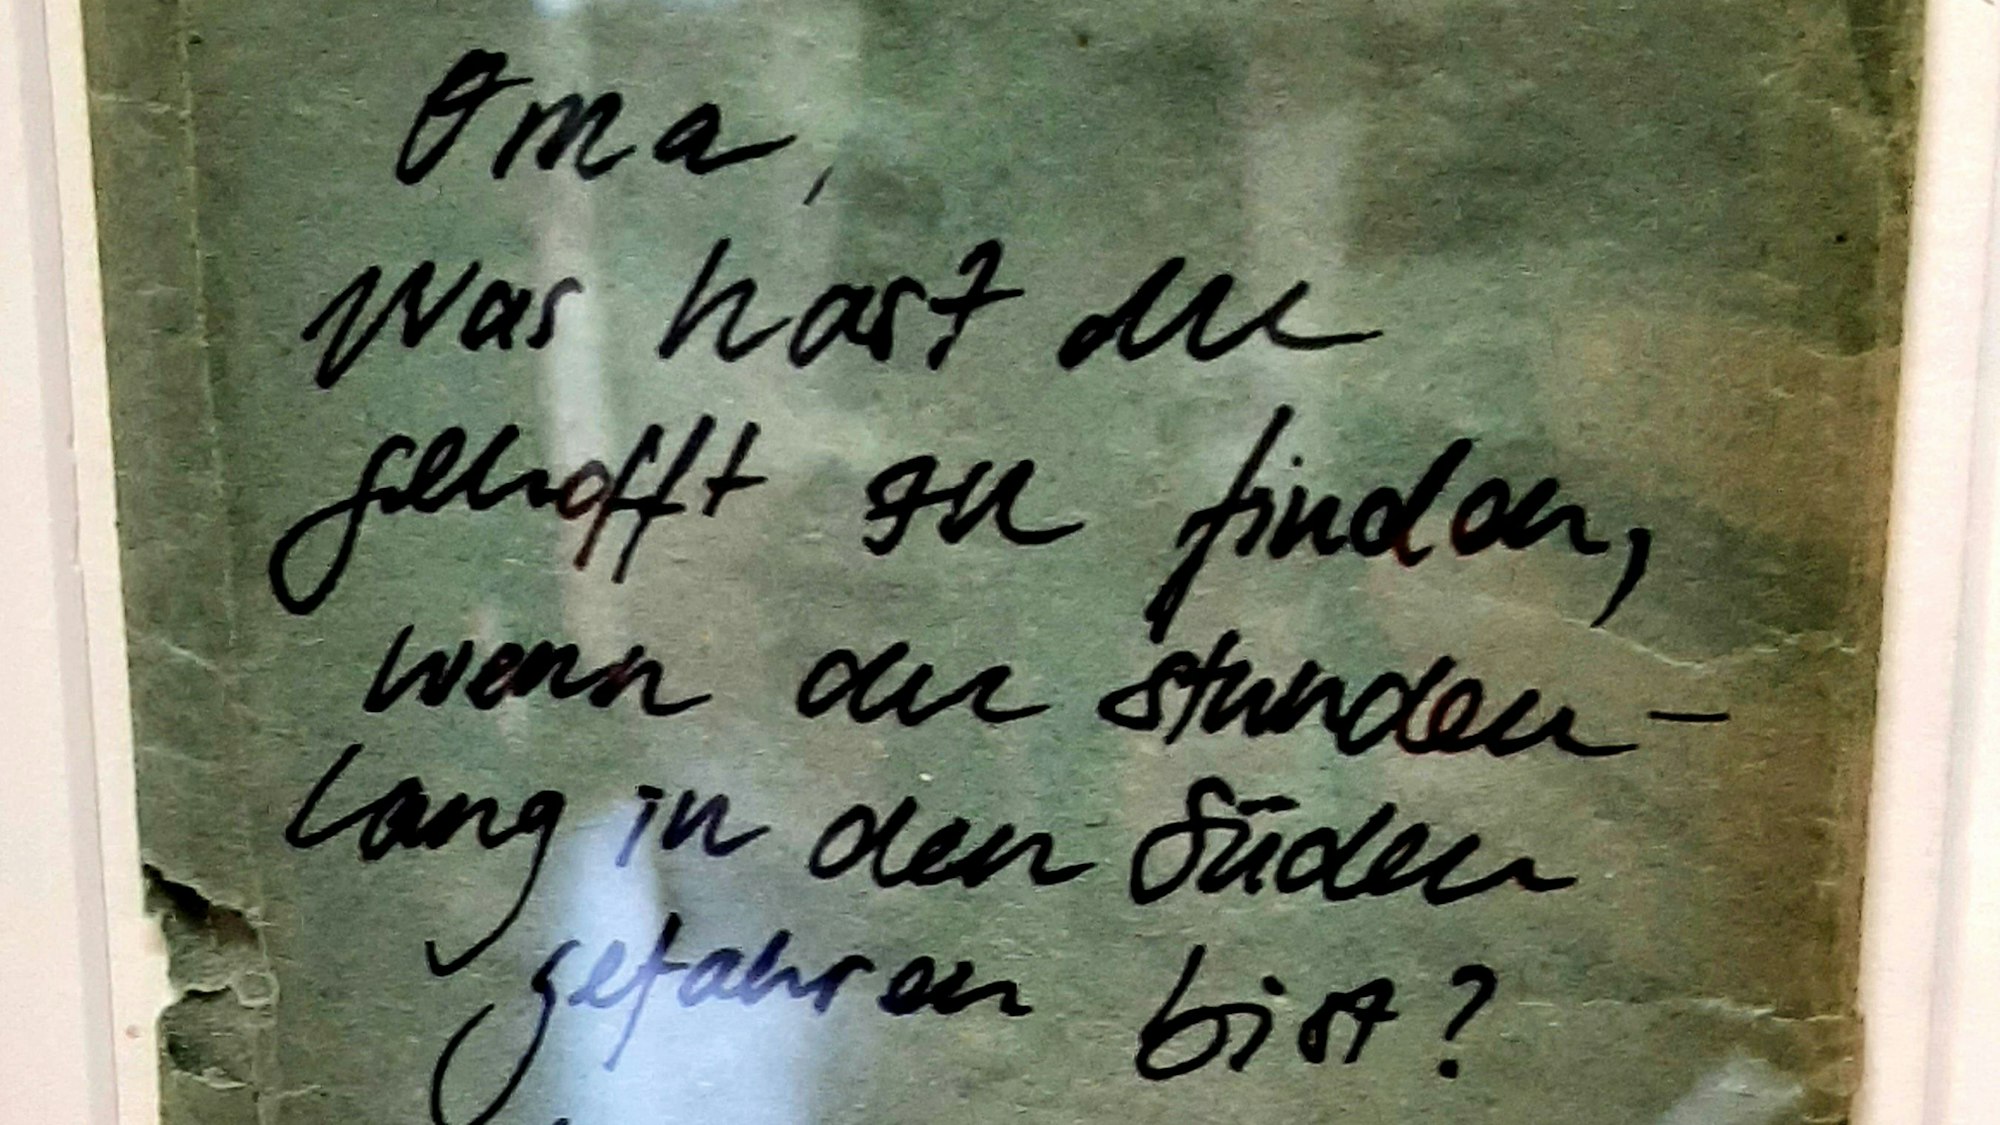 Oma,
Was hast du
gehofft zu finden,
wenn du stunden-
lang in den Süden
gefahren bist?